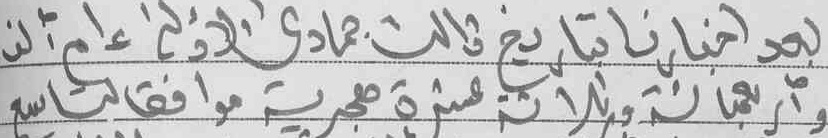 بعد اخبارنا بتاريخ ثالث جمادى الاولى عام ألف
وأربعمائة وثلاثة عشرة هجرية موافقا لتاسع